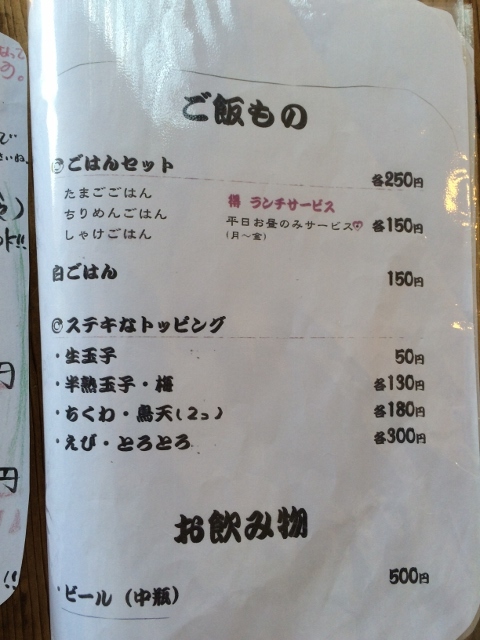 ご飯もの
◎ごはんセット 各250円
たまごごはん
ちりめんごはん
しゃけごはん
得 ランチサービス
平日お昼のみサービス♡ 各150円
(月～金)
白ごはん 150円
◎ステキなトッピング
・生玉子 50円
・半熟玉子・梅 各130円
・ちくわ・鳥天(2つ) 各180円
・えび・とろとろ 各300円
お飲み物
500円
・ビール (中瓶)
円
円
!!